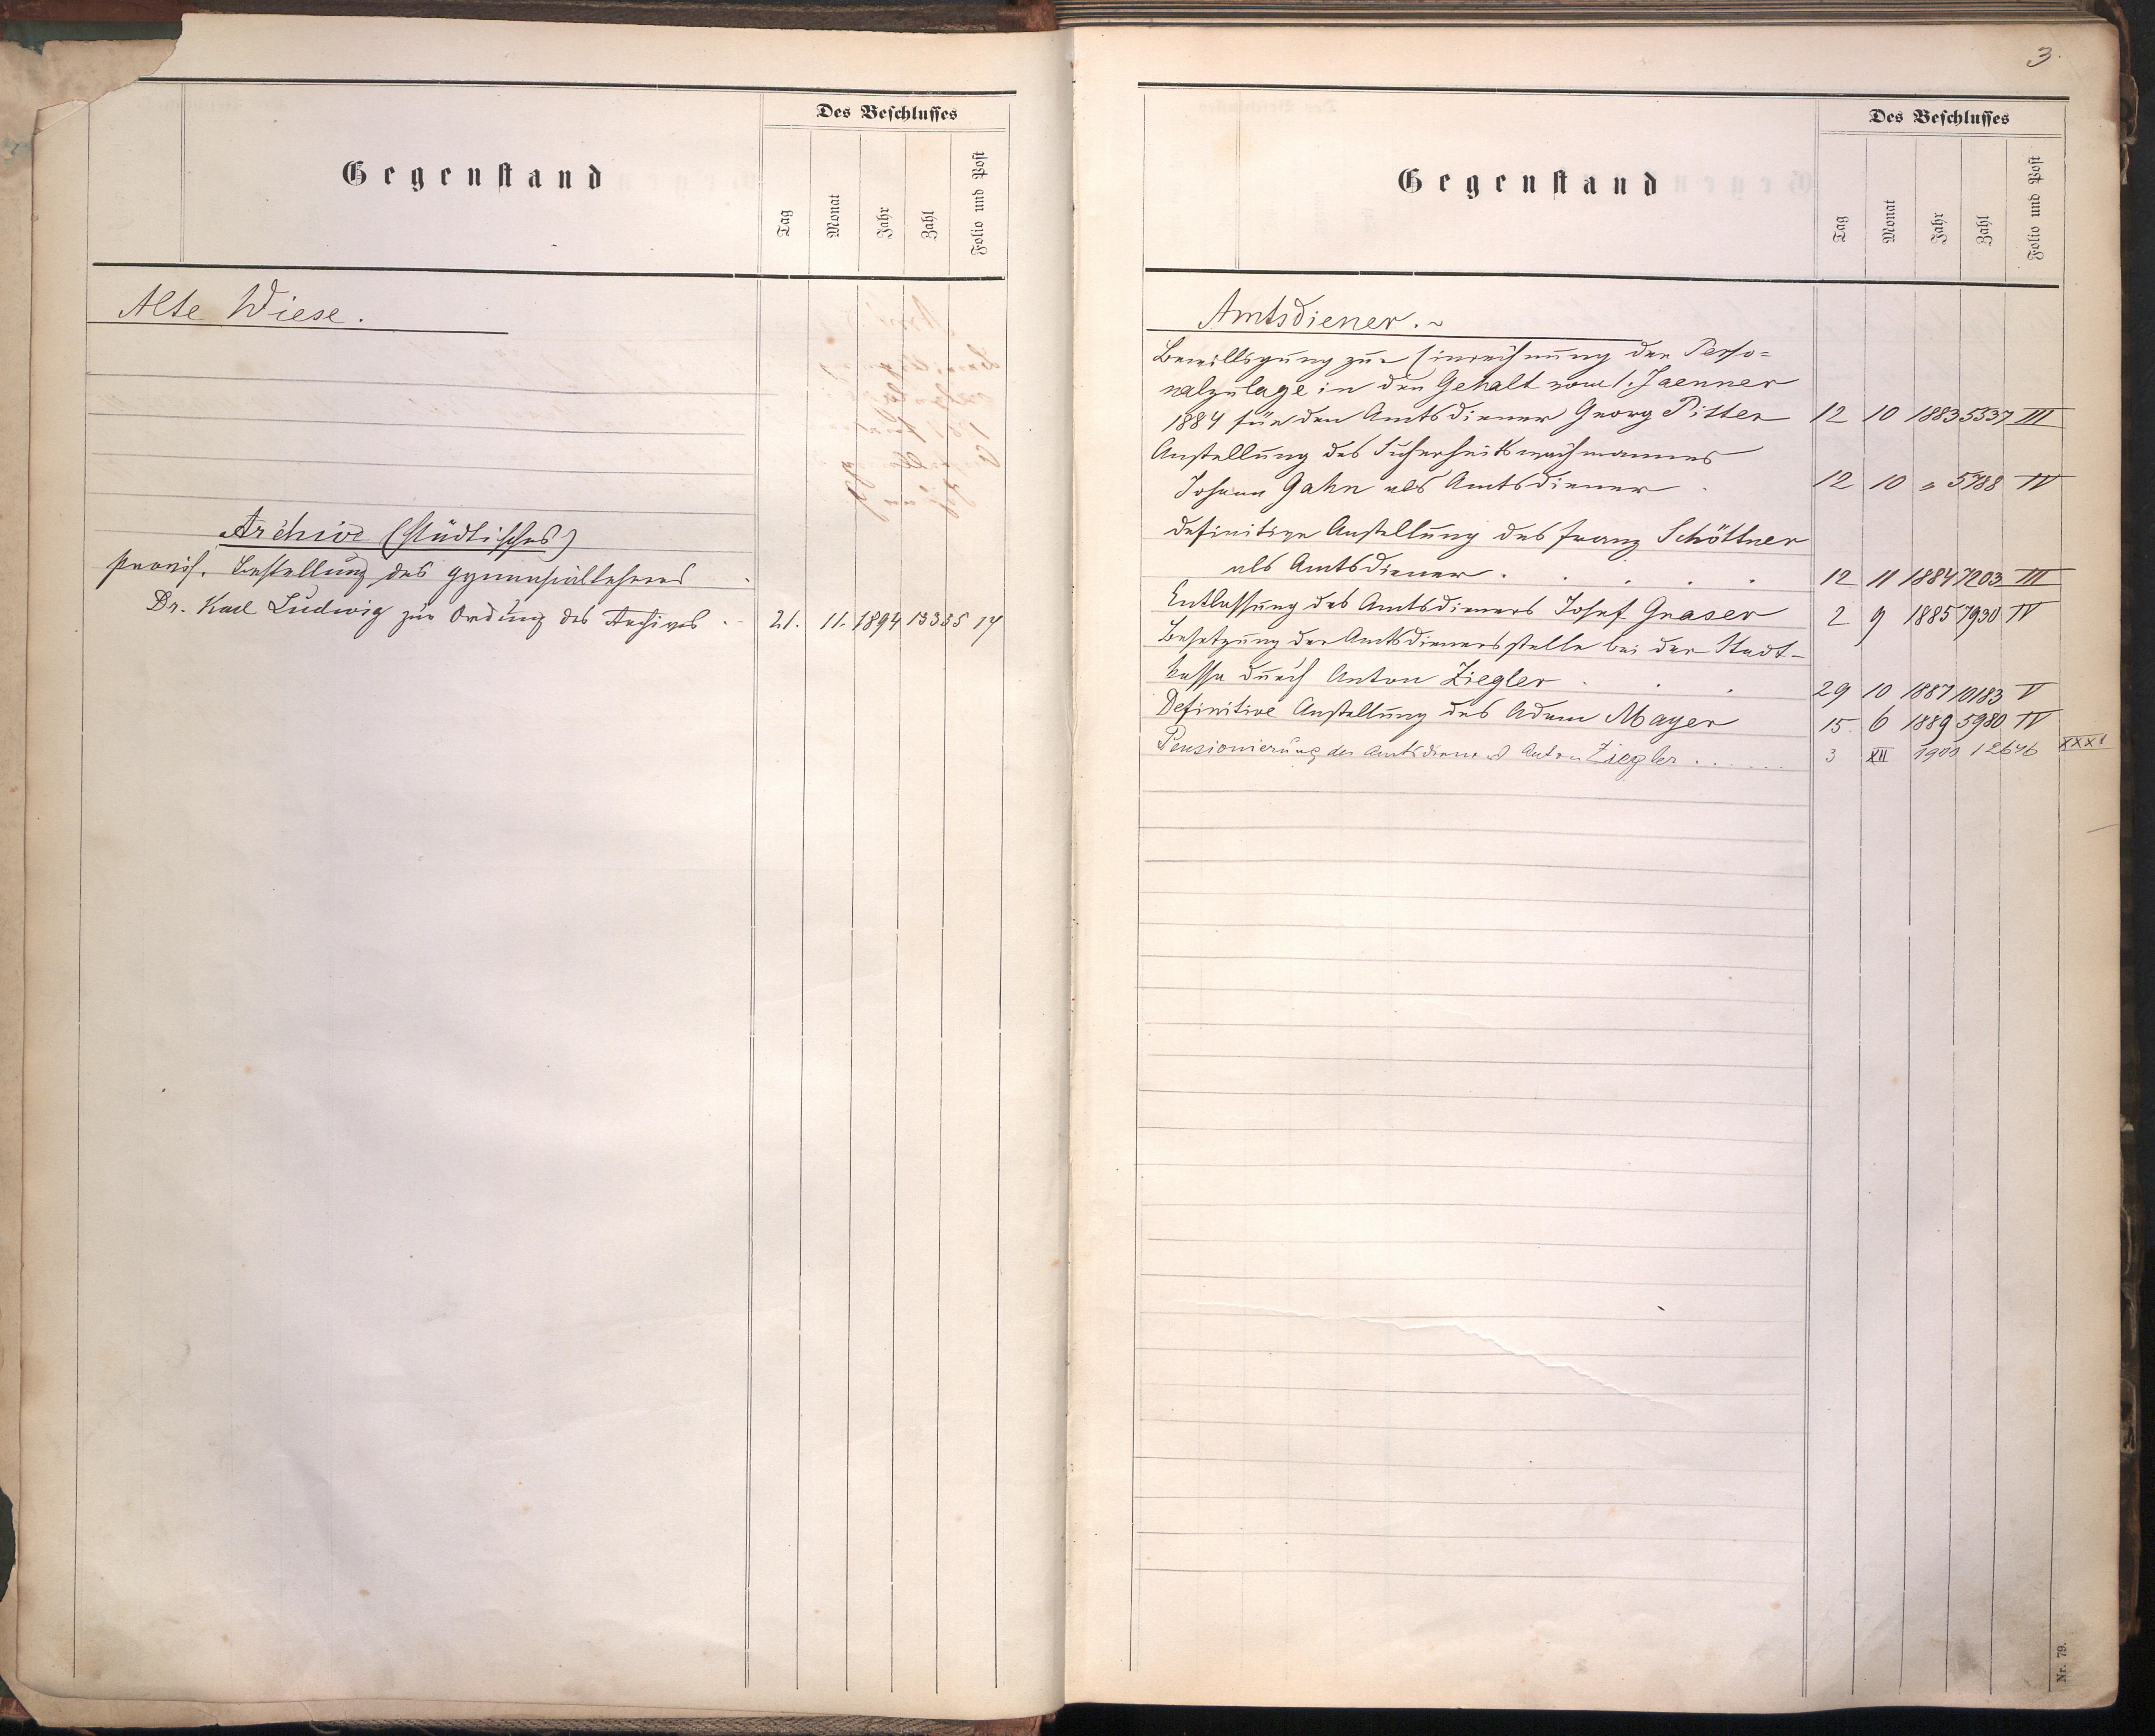 Des Beschlusses
Gegenstand
Tag
Monat
Jahr
Zahl
Folio und Post
Alte Wiese.
Archiv (städtisches)
provis. Bestellung des Gymnasiallehrers
Dr. Karl Ludwig zur Ordnung des Archives . - 21. 11. 1894 13335 14
3.
Des Beschlusses
Gegenstand
Tag
Monat
Jahr
Zahl
Folio und Post
Amtsdiener. ~
Bewilligung zur Einrechnung der Perso=
nalzulage in den Gehalt vom 1. Jaenner
1884 für den Amtsdiener Georg Pitter 12 10 1883 5337 III
Anstellung des Sicherheitswachmannes
Johann Gahn als Amtsdiener . 12 10 " 5788 IV
definitive Anstellung des Franz Schöttner
als Amtsdiener . . . . . 12 11 1884 7203 III
Entlassung des Amtsdieners Josef Graser 2 9 1885 7930 IV
Besetzung der Amtsdienersstelle bei der Stadt-
kassa durch Anton Ziegler . . . 29 10 1887 10183 V
Definitive Anstellung des Adam Mayer 15. 6 1889 5980 IV
Pensionierung des Amtsdieners Anton Ziegler . . . . . . 3 XII 1900 12646 XXXI
Nr. 79.